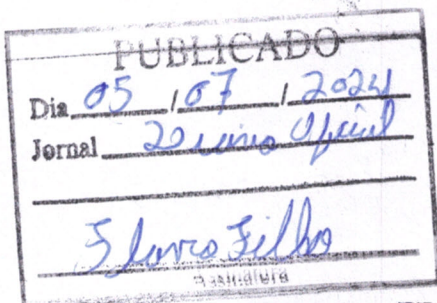 PUBLICADO
Dia 05 / 07 / 2024
Jornal Diário Oficial
Flavio Filho
Assinatura